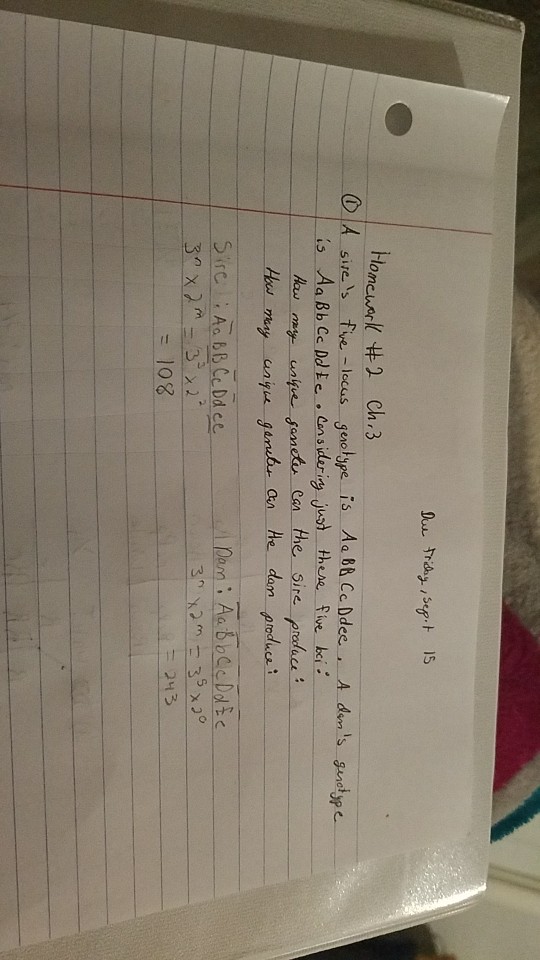 Due Friday, Sept 15
Homework # 2 Ch. 3
① A sire's five-locus genotype is AaBBCcDdee. A dam's genotype
is AaBbCcDdEe. Considering just these five loci:
How many unique gametes can the sire produce?
How many unique gametes can the dam produce?
Sire: AaBBCcDdee
3ⁿ x 2ᵐ = 3³ x 2²
= 108
Dam: AaBbCcDdEe
3ⁿ x 2ᵐ = 3⁵ x 2⁰
= 243